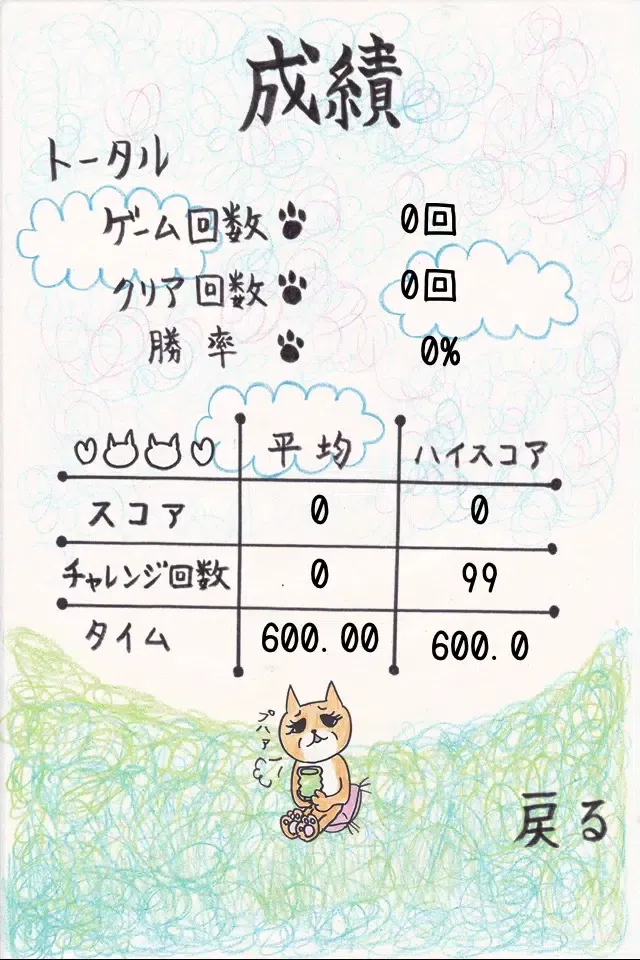 成績
トータル
ゲーム回数 0回
クリア回数 0回
勝率 0%
平均 ハイスコア
スコア 0 0
チャレンジ回数 0 99
タイム 600.00 600.0
プハァー
戻る